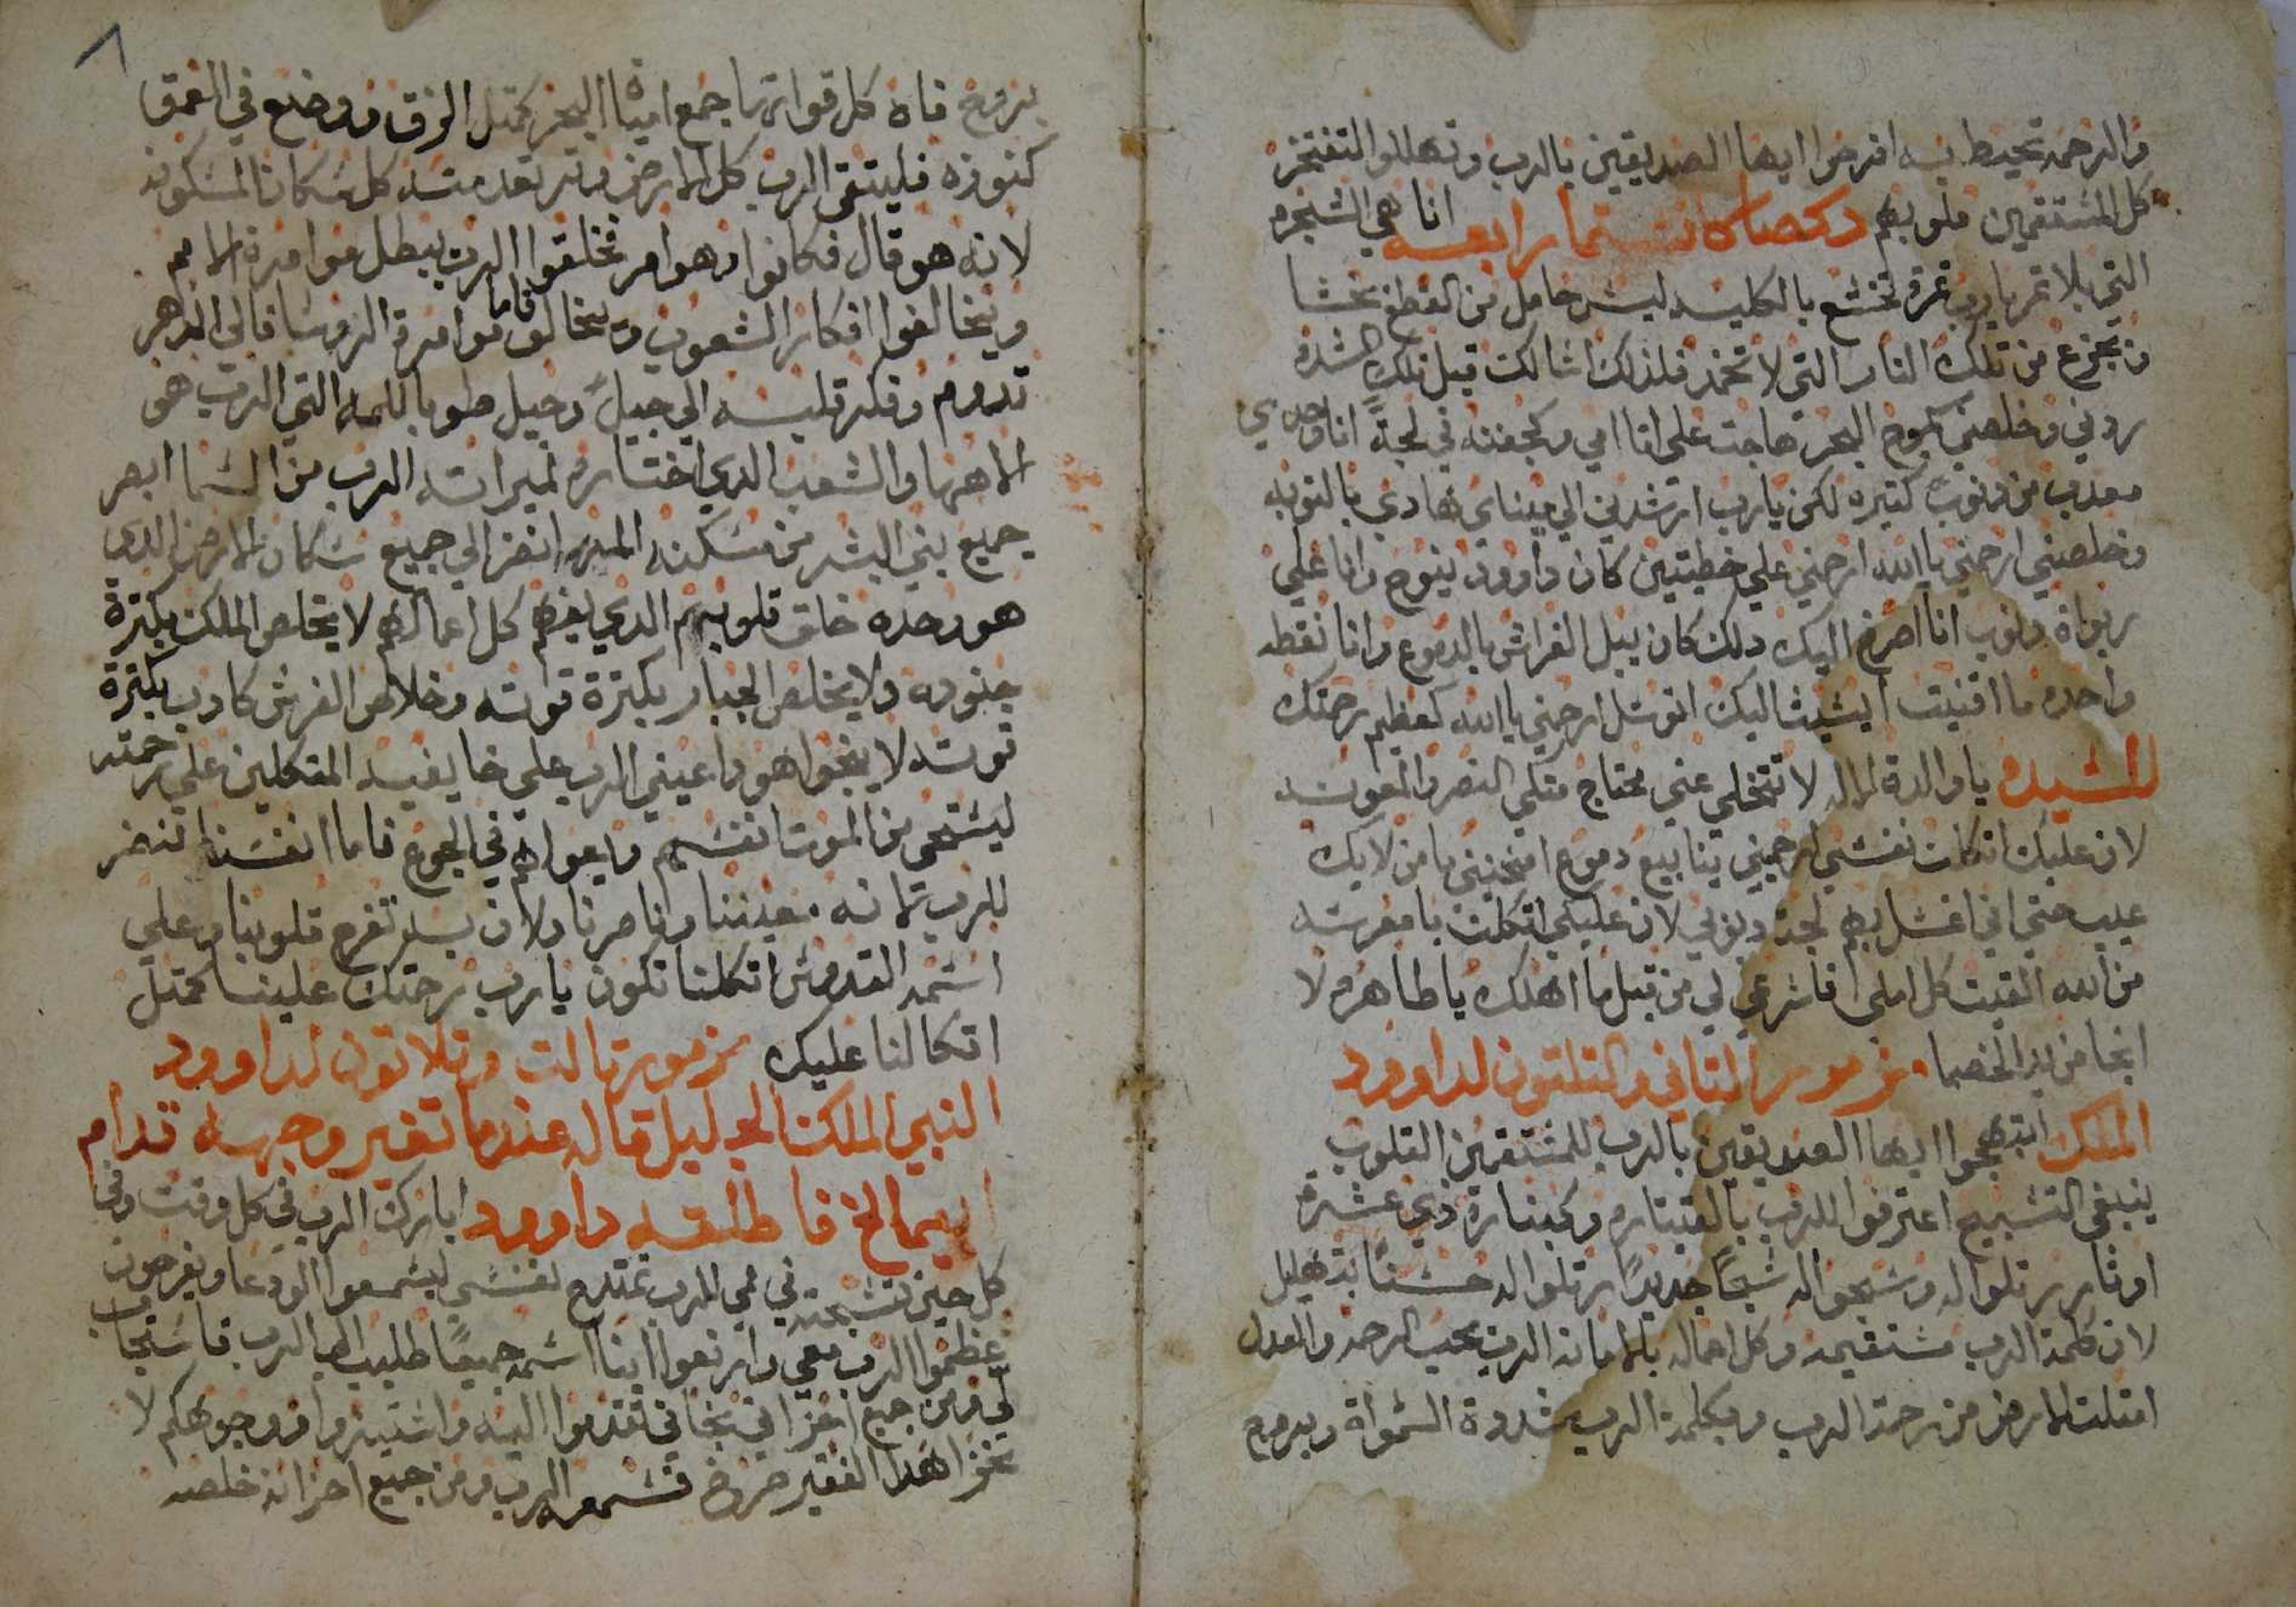 والرحمه تحيط به افرحوا ايها الصديقين بالرب وتهللوا التفتخر
كل المستقمين قلوبهم دكصا كاتسما رابعه انا هي الشجره
التي بلا تمر يارب تمرة تخشع بالكليه ليس حامل من القطع يخشا
ويجزع من تلك النار التي لا تخمد فلذلك اسالك قبل تلك الشده
ردني وخلصني كموج البحر هاجت علي اتامي وكجفنه في لجة انا وحدي
معدب من دنوب كتيره لكن يارب ارشدني الي ميناي هادي بالتوبه
وخلصني ارحمني يا الله ارحمني علي خطيتين كان داوود ينوح وانا علي
ربواة دنوب انا اصرخ اليك دلك كان يبل الفراش بالدموع وانا نقطه
واحده ما اقنيت اليك اتوسل ارحمني يا الله كعظيم رحمتك
للسيده يا والدة الاله لا تتخلي عني محتاج متلي النصر والمعونه
لان عليك اتكلت نفسي ارحميني ينابيع دموع امنحيني يا من لا يك
عيب حتي اني اغسل بهم لجة دنوبي لان عليكي اتكلت يا معرسه
من الله القيت كل املي اشرعي لي من قبل ما اهلك يا طاهره لا
انجا من يد الخصما مزمور التاني والتلتون لداوود
الملك ابتهجوا ايها الصديقين بالرب للمستقمين القلوب
ينبغي التسبيح اعترفوا للرب بالقيتاره وكينارة دي عشرة
اوتار رتلوا له وسبحوا له سبحًا جديدًا رتلوا له حسنًا بتهليل
لان كلمة الرب مستقيمه وكل اعماله بالامانه الرب يحب الرحمه والعدل
امتلت الارض من رحمة الرب وبكلمة الرب تشددة السمواة وبروح
بروح فاه كل قواتها جمع امياه البحر كمتل الزق ووضع في العمق
كنوزه فليتقي الرب كل الارض وترتعد منه كل سكان المسكونه
لانه هو قال فكانوا وهو امر فخلقوا الرب يبطل موامرة الامم
ويخالفوا افكار الشعوب ويخالف موامرة الروسا فاما فالي الدهر
تدوم وفكر قلبه الي جيلً وجيل طوبا للامه التي الرب هو
الاهها والشعب الدي اختاره لميراته الرب من السما ابصر
جميع بني البشر من مسكنه المهيا نضر الي جميع سكان الارض الدي
هو وحده خالق قلوبهم الدي يفهم كل اعمالهم لا يخلص الملك بكترة
جنوده ولا يخلص الجبار بكترة قوته وخلاص الفرس كادب بكترة
قوته لا ينجوا هودا عيني الرب علي خايفيه المتكلين علي رحمته
لينجي من الموت انفسهم ويعولهم في الجوع فاما انفسنا تنضر
للرب معيننا وناصرنا ولان به تفرح قلوبنا وعلي
اسمه القدوس اتكلنا تكون يارب رحمتك علينا كمتل
اتكالنا عليك مزمور تالت وتلاتون لداوود
النبي الملك الجليل قاله عندما تغير وجهه قدام
ابيمالخ فاطلقه داوود ابارك الرب في كل وقت وفي
كل حين تسبحته في فمي بالرب تمتدح نفسي ليسمعوا الودعا ويفرحون
عظموا الرب معي وارتفعوا ابنا اسمه جميعًا طلبت الي الرب فاستجاب
لي ومن جميع احزاني نجاني تقدموا اليه واستنيروا ووجوهكم لا
تخزا هدا الفقير صرخ فسمعه الرب ومن جميع احزانه خلصه